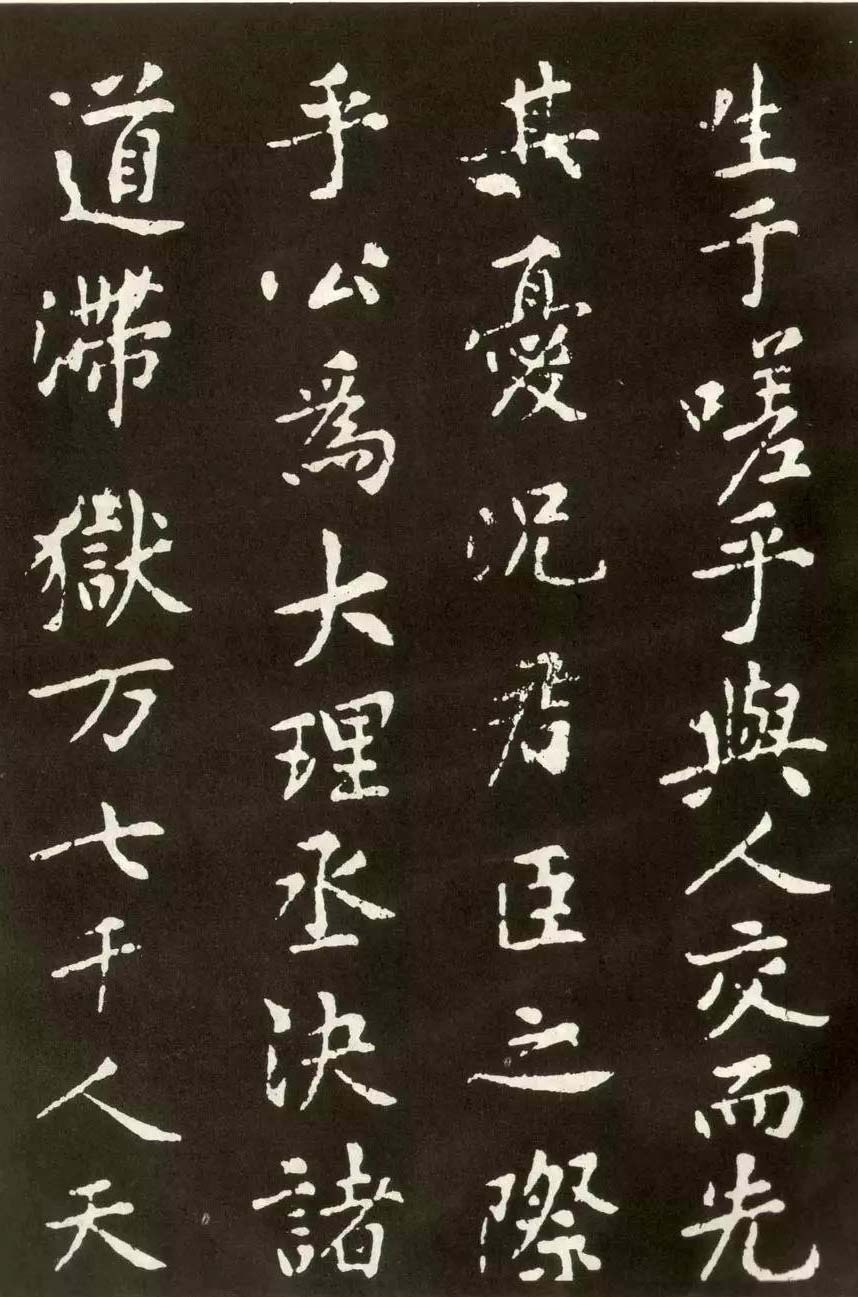 生于嗟乎與人交而先
其憂況君臣之際
乎公爲大理丞決諸
道滯獄万七千人天